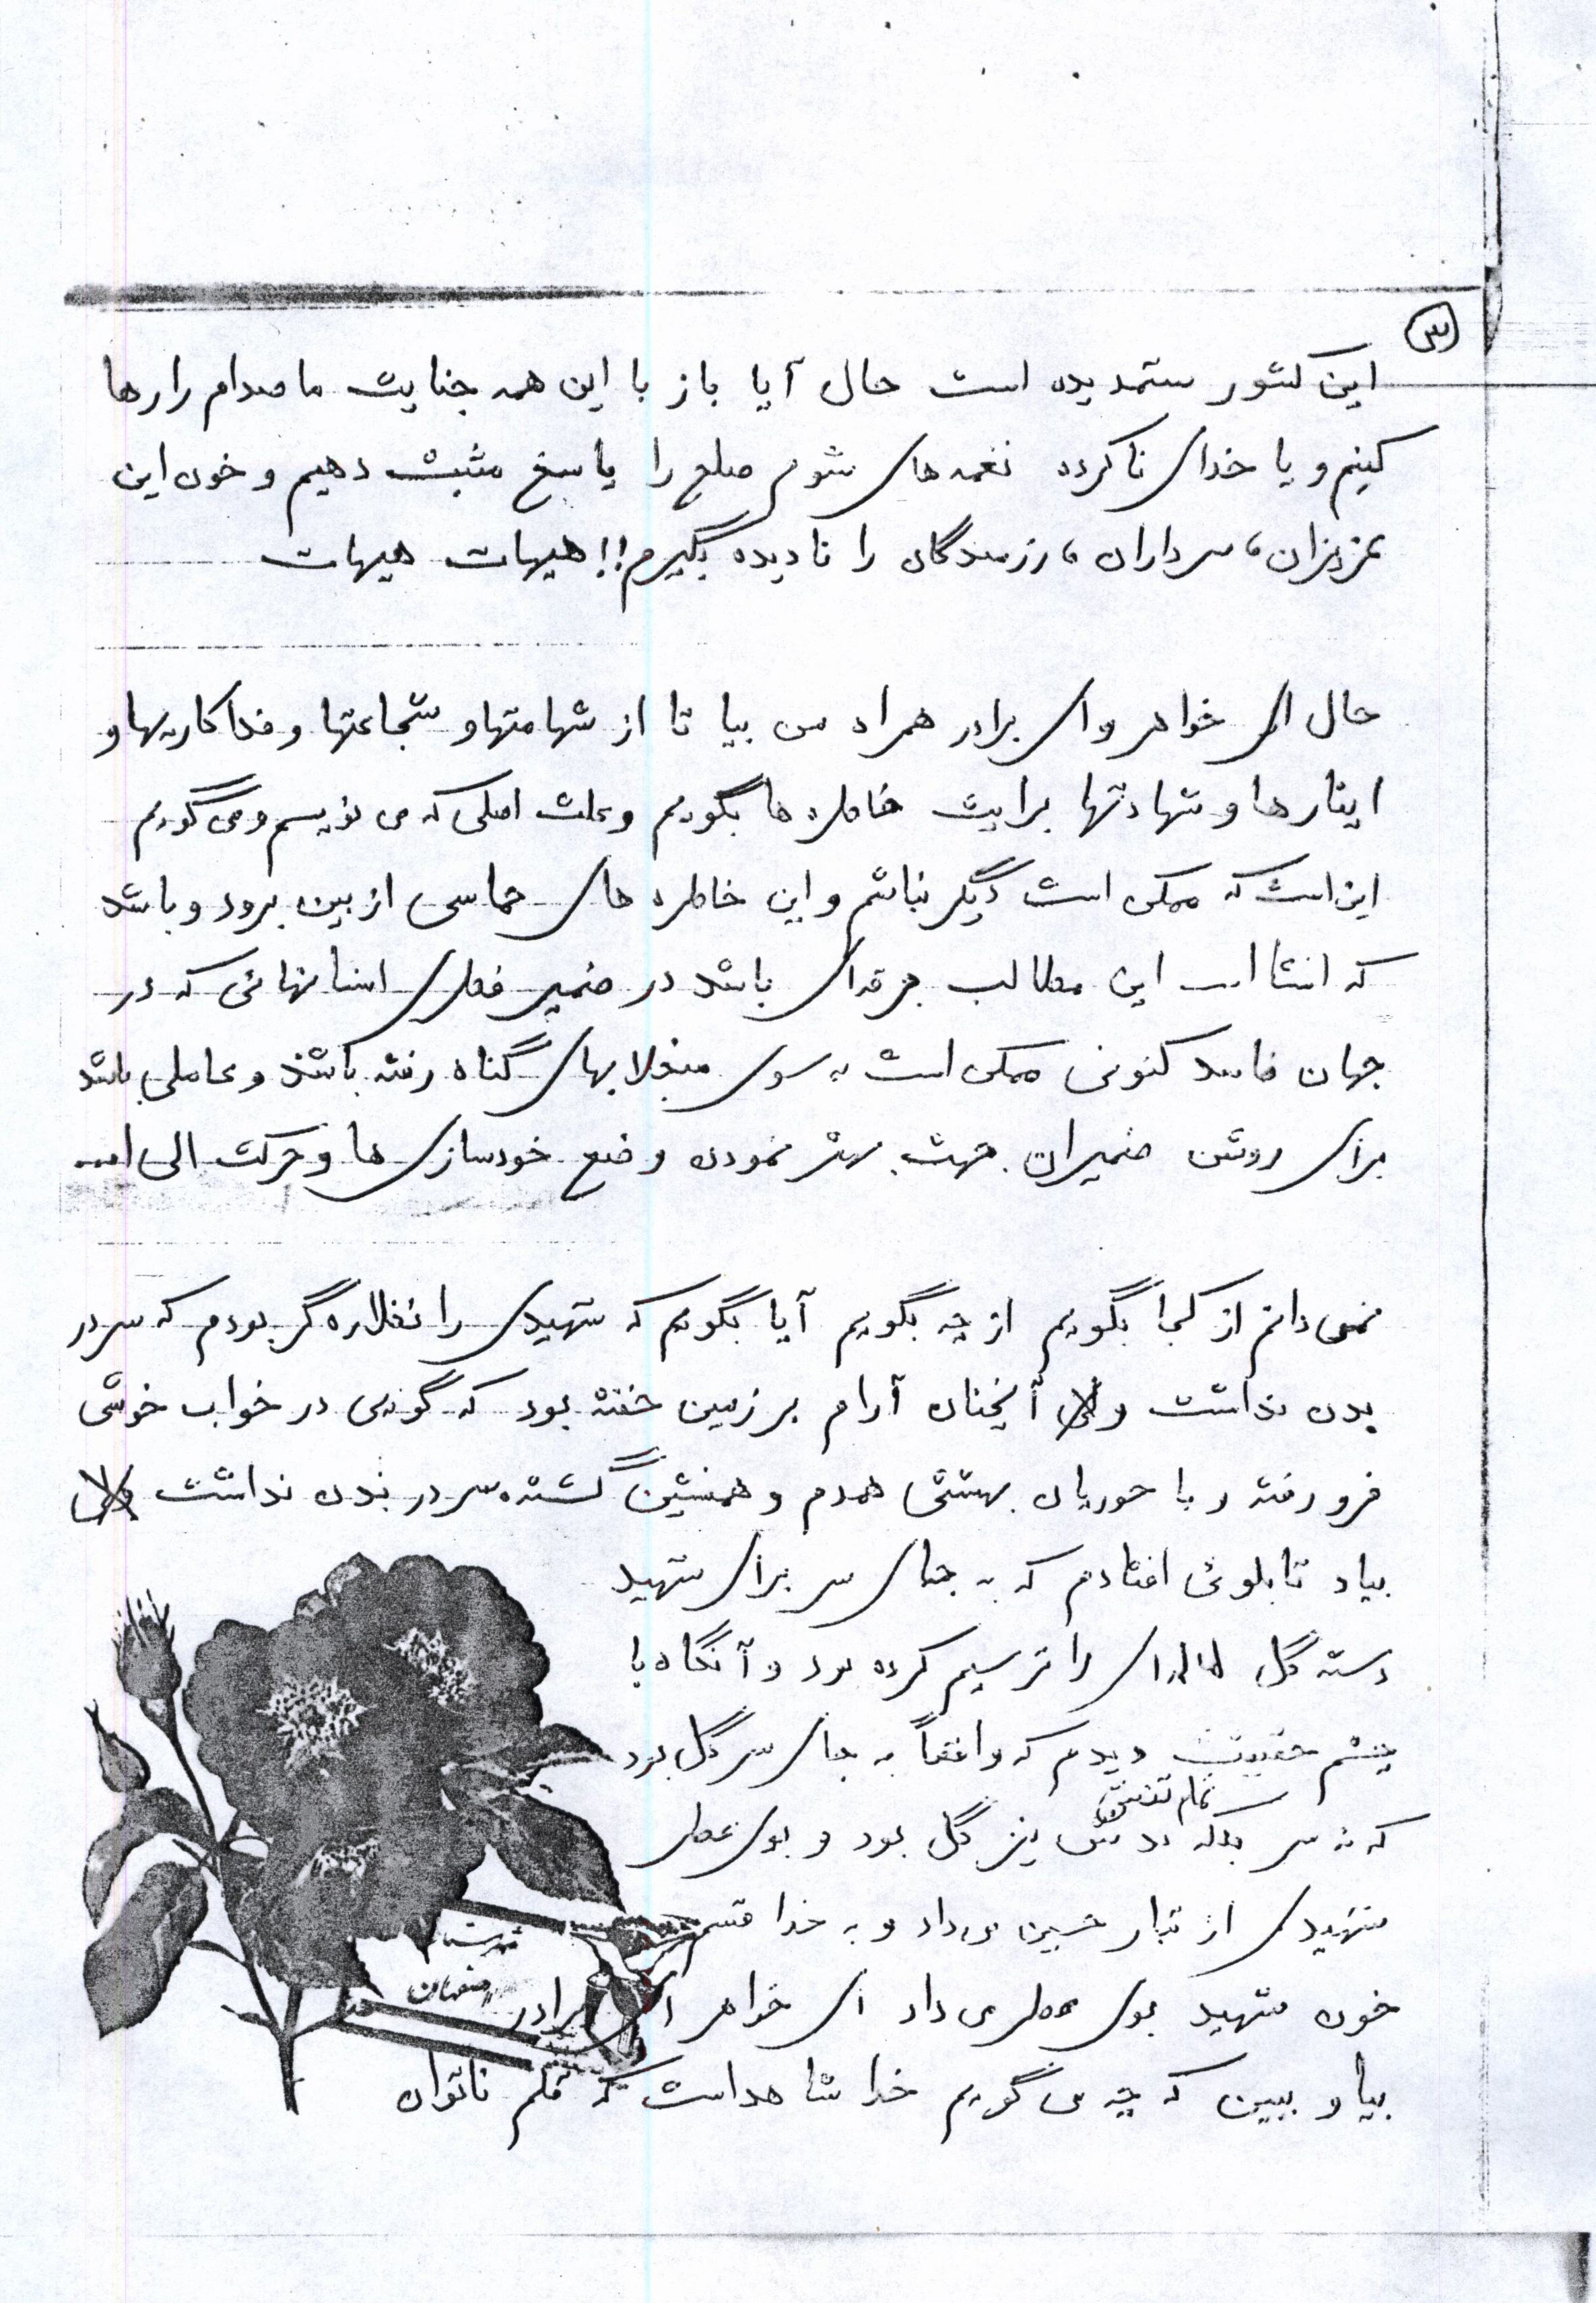 ۳
این کشور ستمدیده است حال آیا باز با این همه جنایت ما صدام را رها
کنیم و یا خدای ناکرده نغمه های شوم صلح را پاسخ مثبت دهیم و خون این
عزیزان، سرداران، رزمندگان را نادیده بگیرم!! هیهات هیهات
حال ای خواهر و ای برادر همراه من بیا تا از شهامتها و شجاعتها و فداکاریها و
ایثارها و شهادتها برایت خاطره ها بگویم و علت اصلی که می نویسم و می گویم
این است که ممکن است دیگر نباشم و این خاطره های حماسی از بین برود و باشد
که انشاا... این مطالب جرقه ای باشد در ضمیر فطری انسانهائی که در
جهان فاسد کنونی ممکن است به سوی منجلابهای گناه رفته باشند و عاملی باشد
برای روشن ضمیران جهت بهتر نمودن وضع خودسازی ها و حرکت الی ا...
نمی دانم از کجا بگویم از چه بگویم آیا بگویم که شهیدی را نظاره گر بودم که سر در
بدن نداشت ولی آنچنان آرام بر زمین خفته بود که گویی در خواب خوشی
فرو رفته و با حوریان بهشتی همدم و همنشین گشته سر در بدن نداشت ولی
بیاد تابلوئی افتادم که به جای سر برای شهید
دسته گل لاله ای را ترسیم کرده بود و آنگاه با
چشم حقیقت دیدم که واقعاً به جای سر گل بود
تمام تنش
که نه سر بلکه نیز گل بود و بوی عطر
شهیدی از تبار حسین می داد و به خدا قسم
خون شهید بوی عطر می داد ای خواهر ای برادر
اصفهان
بیا و ببین که چه می گویم خدا شاهد است که قلم ناتوان